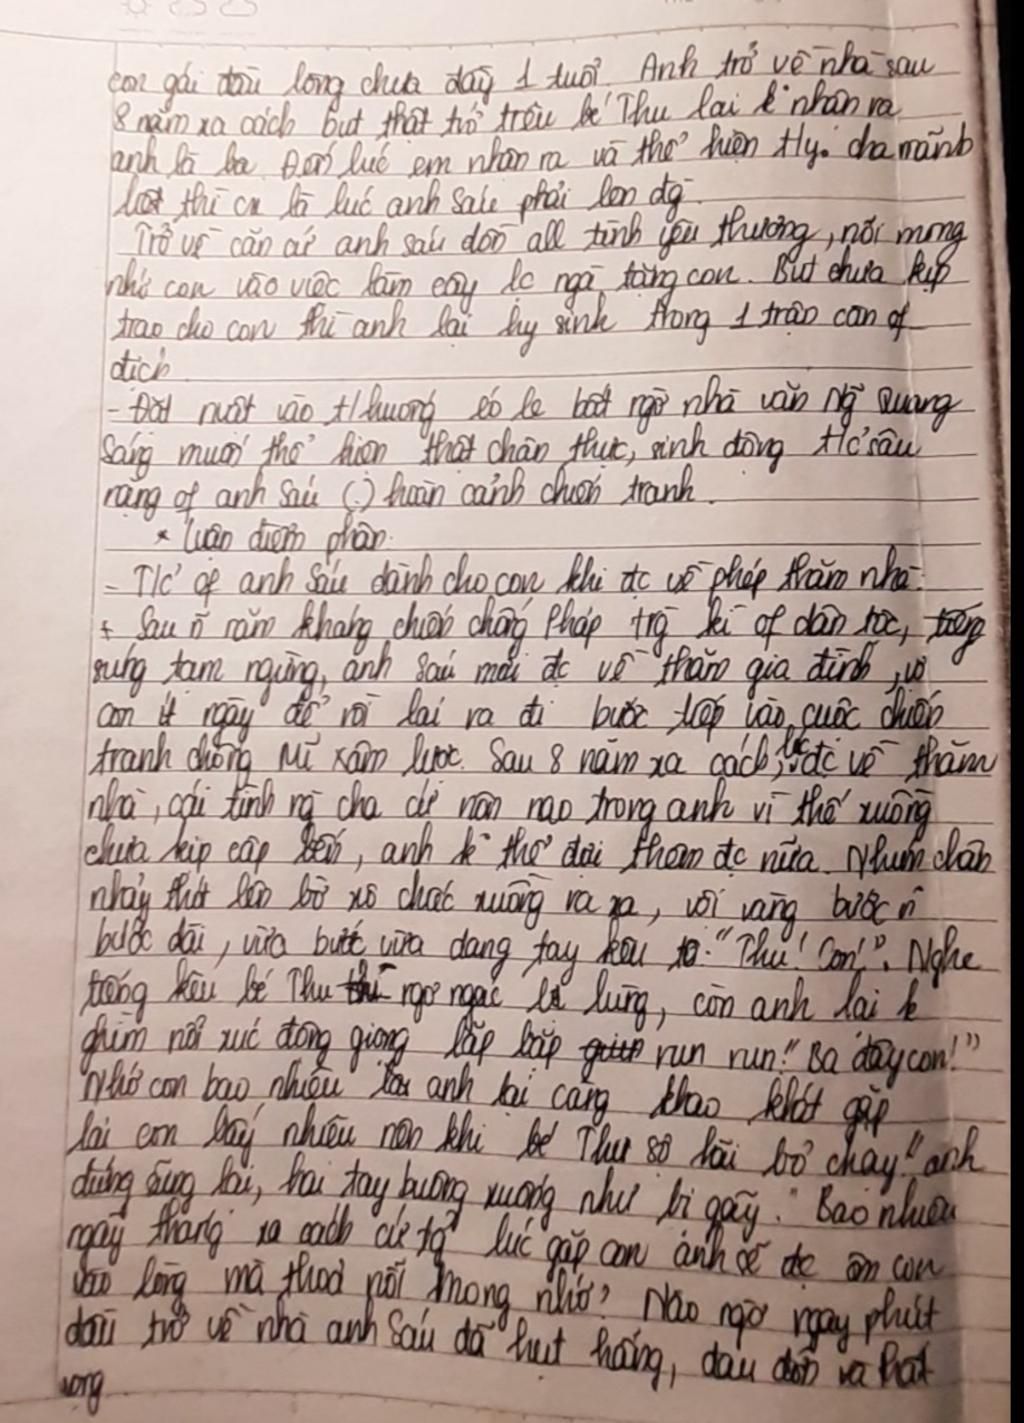 con gái đầu lòng chưa đầy 1 tuổi. Anh trở về nhà sau
8 năm xa cách but thật trớ trêu bé Thu lại k nhận ra
anh là ba. Đến lúc em nhận ra và thể hiện t/y. cha mãnh
liệt thì cx là lúc anh Sáu phải lên đg.
Trở về căn cứ anh sáu dồn all tình yêu thương, nỗi mong
nhớ con vào việc làm cây lc ngà tặng con. But chưa kịp
trao cho con thì anh lại hy sinh trong 1 trận can of
địch
- Đặt nvật vào t/huống éo le bất ngờ nhà văn Ng~ Quang
Sáng muốn thể hiện thật chân thực, sinh động t/c' sâu
nặng of anh Sáu (.) hoàn cảnh chiến tranh.
* Luận điểm phân.
- T/c' of anh Sáu dành cho con khi đc về phép thăm nhà.
+ Sau n~ năm kháng chiến chống Pháp trg kì of dân tộc, tiếng
súng tạm ngừng, anh sáu mới đc về thăm gia đình, vợ
con ít ngày để rồi lại ra đi bước tiếp vào cuộc chiến
tranh chống Mĩ xâm lược. Sau 8 năm xa cách, đc về thăm
nhà, cái tình ng cha cứ nôn nao trong anh vì thế xuồng
chưa kịp cập bến, anh k thể đợi thêm đc nữa. Nhún chân
nhảy thót lên bờ xô chiếc xuồng ra xa, vội vàng bước n~
bước dài, vừa bước vừa dang tay kêu to: "Thu! Con!". Nghe
tiếng kêu bé Thu ngơ ngác lạ lùng, còn anh lại k
ghìm nổi xúc động giọng lắp bắp run run: "Ba đây con!"
Nhớ con bao nhiêu anh lại càng khao khát gặp
lại con bấy nhiêu nên khi bé Thu sợ hãi bỏ chạy "anh
đứng sững lại, hai tay buông xuống như bị gãy." Bao nhiêu
ngày tháng xa cách cứ tg lúc gặp con anh sẽ đc ôm con
vào lòng mà thoả nỗi mong nhớ? Nào ngờ ngay phút
đầu trở về nhà anh Sáu đã hụt hẫng, đau đớn và thất
vọng